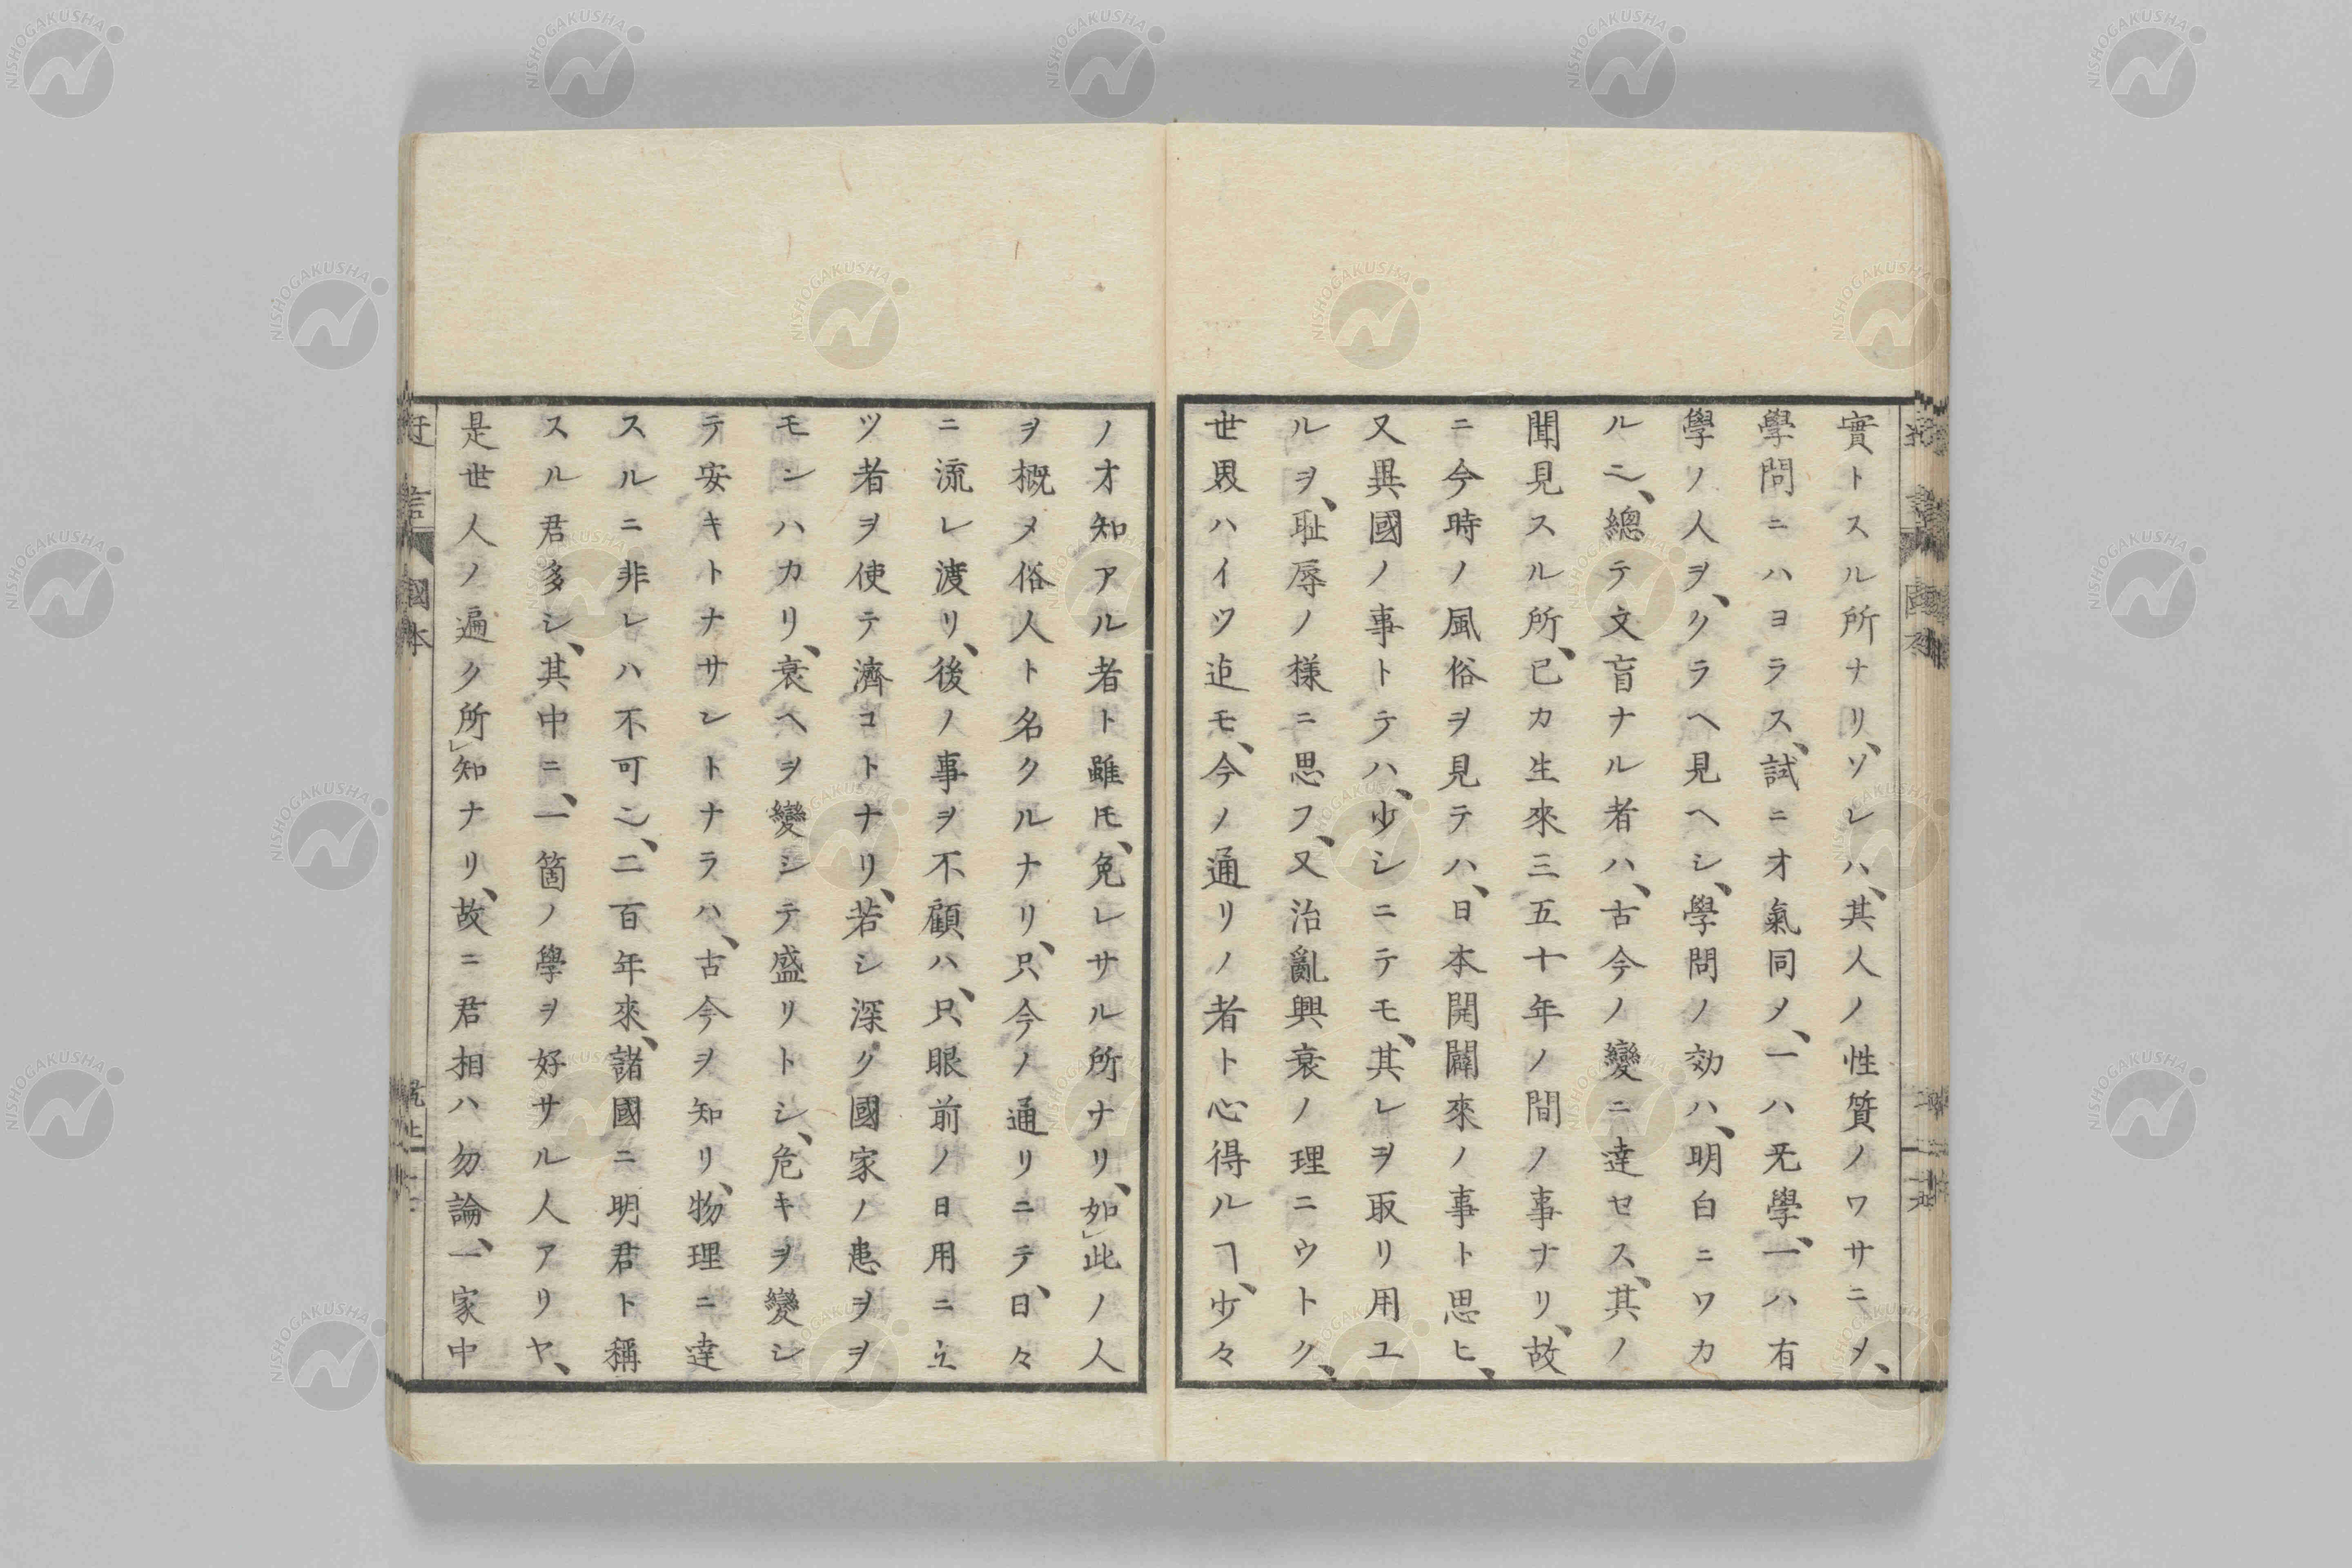 實トスル所ナリ、ソレハ、其人ノ性質ノワサニメ、
學問ニハヨラス、試ニオ氣同メ、一ハ无學、一ハ有
學ノ人ヲ、クラヘ見ヘシ、學問ノ効ハ、明白ニワカ
ルニ、總テ文盲ナル者ハ、古今ノ變ニ達セス、其ノ
聞見スル所、已カ生來三五十年ノ間ノ事ナリ、故
ニ今時ノ風俗ヲ見テハ、日本開闢來ノ事ト思ヒ、
又異國ノ事トテハ、少シニテモ、其レヲ取リ用ユ
ルヲ、耻辱ノ様ニ思フ、又治亂興衰ノ理ニウトク、
世界ハイツ迠モ、今ノ通リノ者ト心得ルヿ、少々
ノオ知アル者ト雖𪜈、免レサル所ナリ、如此ノ人
ヲ概メ俗人ト名クルナリ、只今ノ通リニテ、日々
ニ流レ渡リ、後ノ事ヲ不顧ハ、只眼前ノ日用ニ立
ツ者ヲ使テ濟コトナリ、若シ深ク國家ノ患ヲヲ
モンハカリ、衰ヘヲ變シテ盛リトシ、危キヲ變シ
テ安キトナサントナラハ、古今ヲ知リ、物理ニ達
スルニ非レハ不可ン、二百年來、諸國ニ明君ト稱
スル君多シ、其中ニ、一箇ノ學ヲ好サル人アリヤ、
是世人ノ遍ク所知ナリ、故ニ君相ハ勿論、一家中
國本
NISHOGAKUSHA